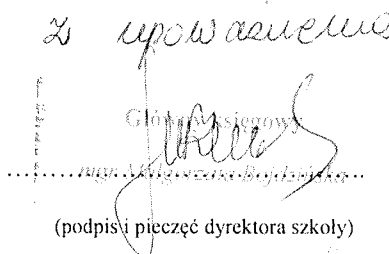 z upoważnienia
Główny księgowy
mgr Małgorzata
(podpis i pieczęć dyrektora szkoły)